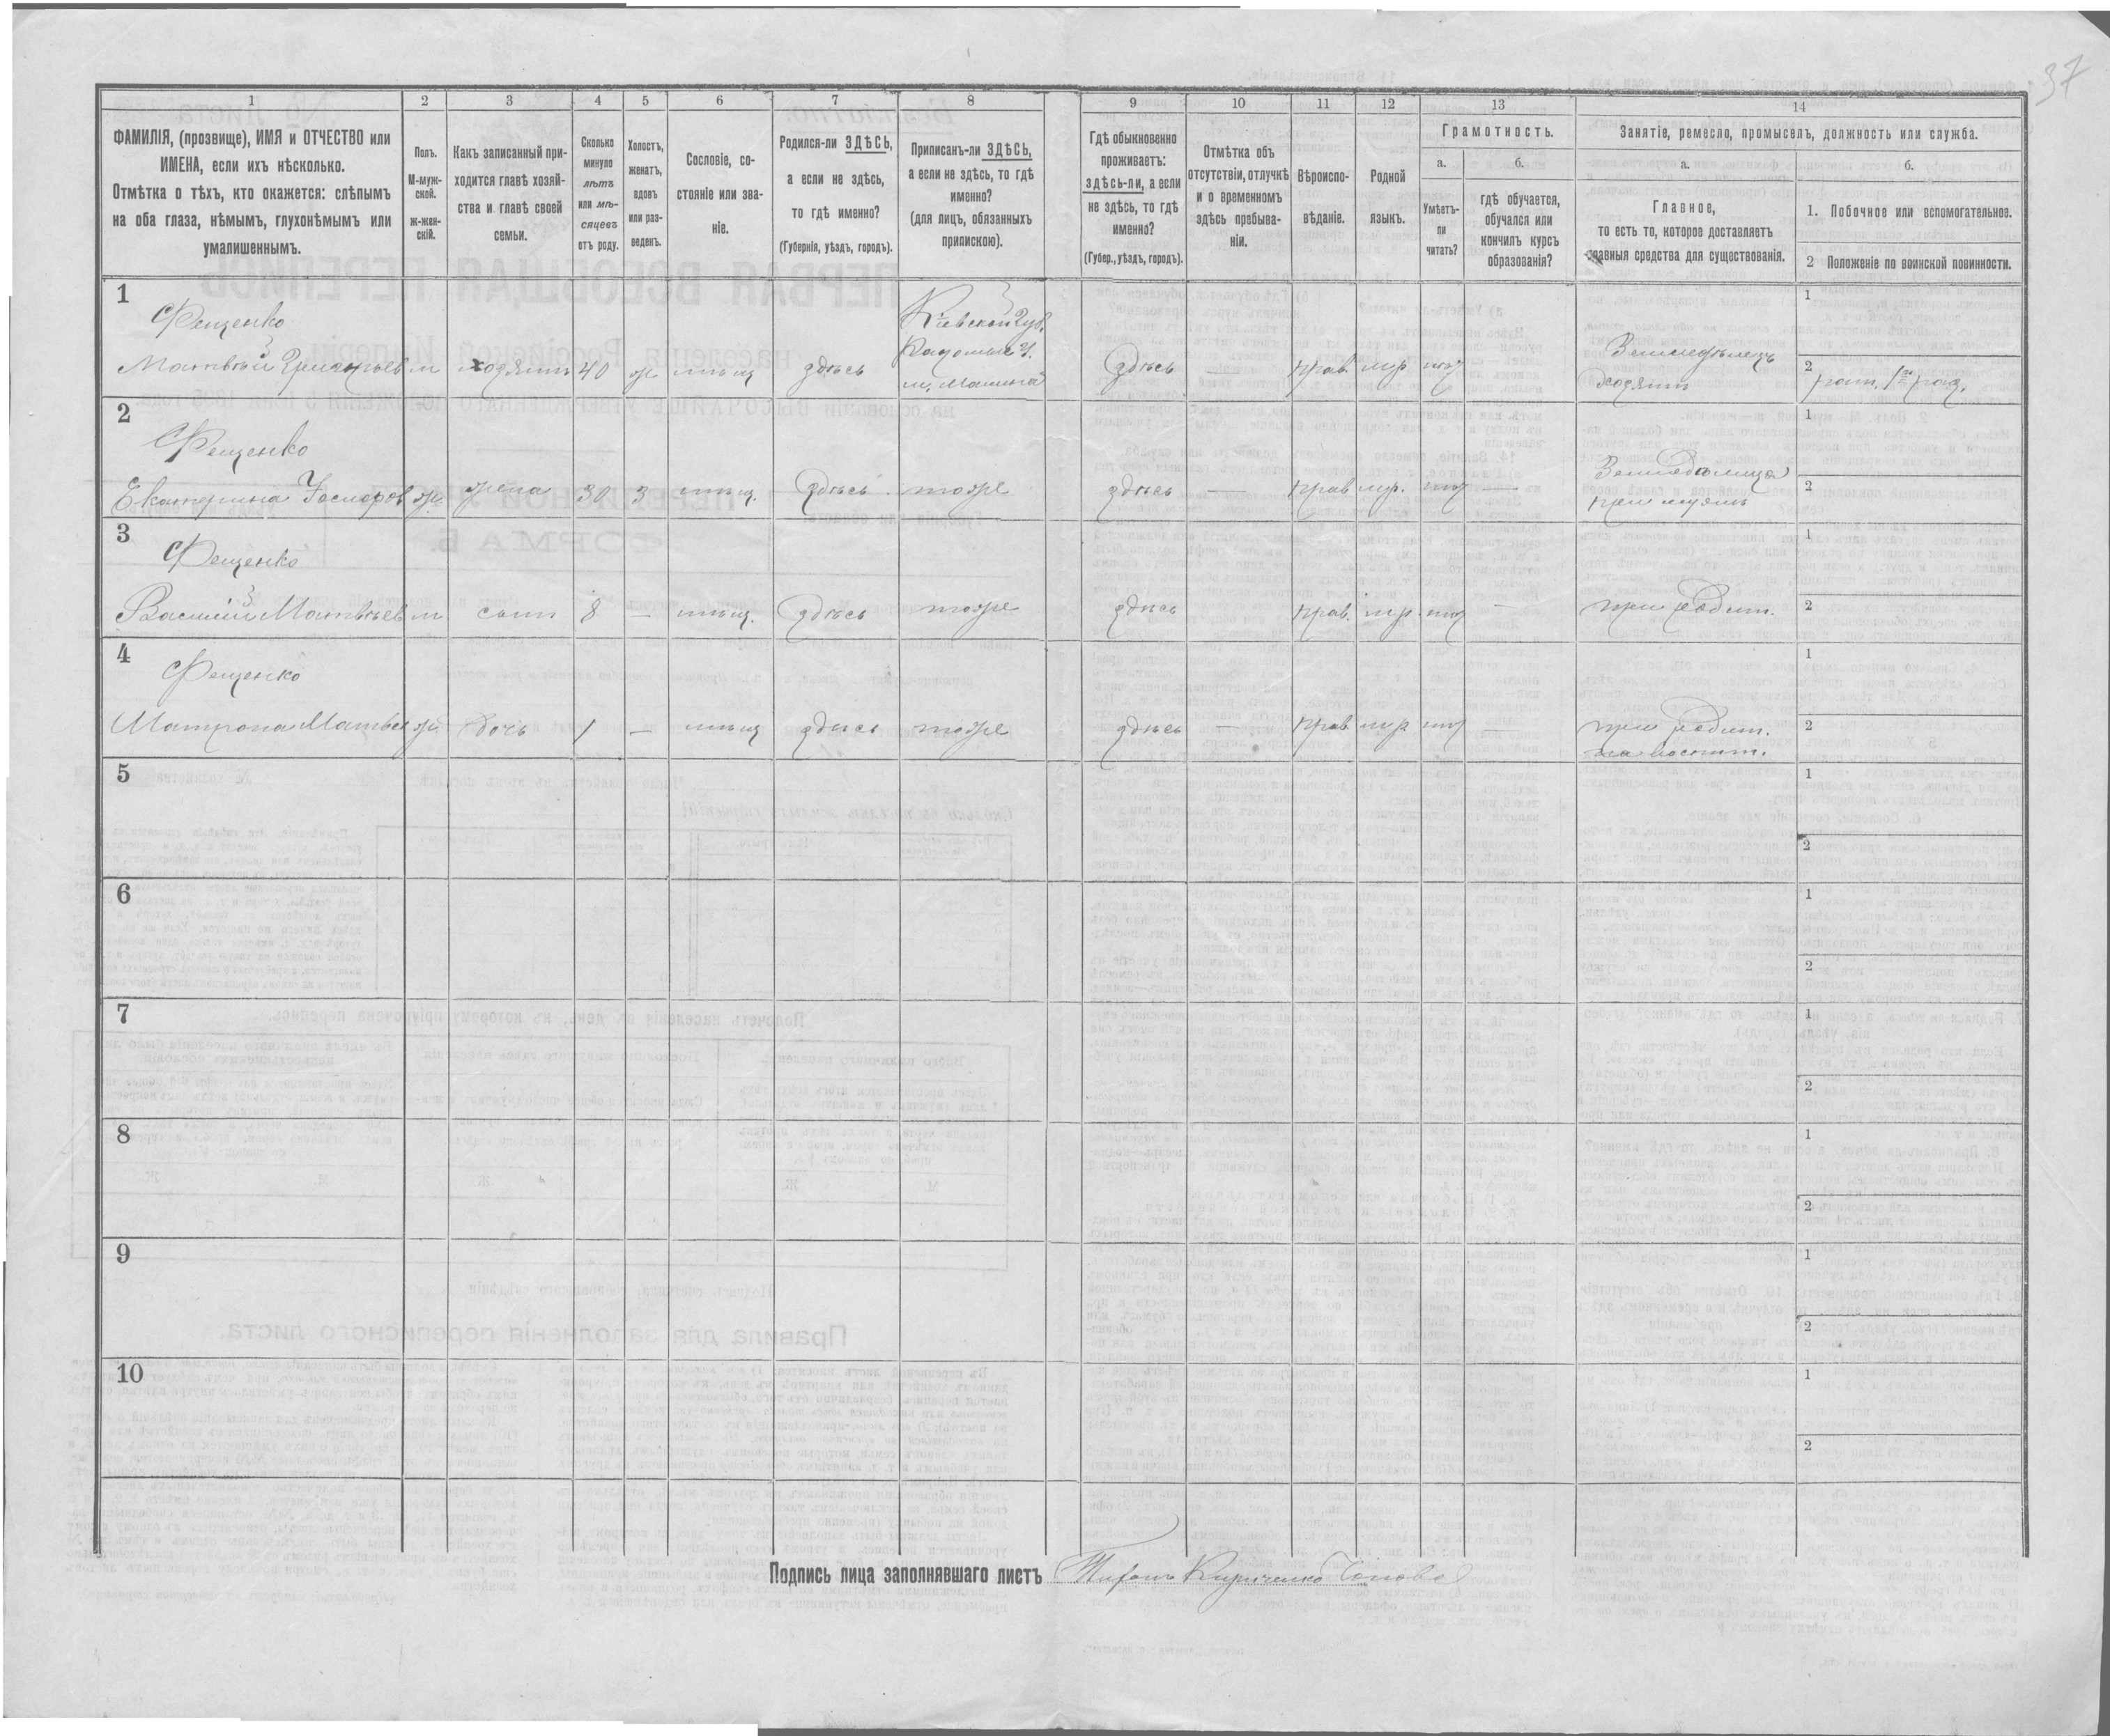 37
1 2 3 4 5 6 7 8 9 10 11 12 13 14
ФАМИЛІЯ, (прозвище), ИМЯ и ОТЧЕСТВО или
ИМЕНА, если ихъ нѣсколько.
Отмѣтка о тѣхъ, кто окажется: слѣпымъ
на оба глаза, нѣмымъ, глухонѣмымъ или
умалишеннымъ.
Полъ.
М-муж-
ской.
ж-жен-
скій.
Какъ записанный при-
ходится главѣ хозяй-
ства и главѣ своей
семьи.
Сколько
минуло
лѣтъ
или мѣ-
сяцевъ
отъ роду.
Холостъ,
женатъ,
вдовъ
или раз-
веденъ.
Сословіе, со-
стояніе или зва-
ніе.
Родился-ли ЗДѢСЬ,
а если не здѣсь,
то гдѣ именно?
(Губернія, уѣздъ, городъ).
Приписанъ-ли ЗДѢСЬ,
а если не здѣсь, то гдѣ
именно?
(для лицъ, обязанныхъ
припискою).
Гдѣ обыкновенно
проживаетъ:
здѣсь-ли, а если
не здѣсь, то гдѣ
именно?
(Губер., уѣздъ, городъ).
Отмѣтка объ
отсутствіи, отлучкѣ
и о временномъ
здѣсь пребыва-
ніи.
Вѣроиспо-
вѣданіе.
Родной
языкъ.
Грамотность.
а.
Умѣетъ-
ли
читать?
б.
гдѣ обучается,
обучался или
кончилъ курсъ
образованія?
Занятіе, ремесло, промыселъ, должность или служба.
а.
Главное,
то есть то, которое доставляетъ
главныя средства для существованія.
б.
1. Побочное или вспомогательное.
2 Положеніе по воинской повинности.
1
Фещенко
Кіевской Губ.
Матвѣй Григорьев м хозяинъ 40 ж мѣщ здѣсь
Здѣсь — прав мр нѣт
Земледѣлецъ
хозяинъ
1
2
2
Фещенко
Екатерина ж жена 30 З мѣщ. Здѣсь тоже
здѣсь — прав мр. нѣт —
при мужѣ
1
2
3
Фещенко
Василій Матвѣев м сын 8 — мѣщ. Здѣсь тоже
здѣсь прав. мр. нѣт —
при родит.
1
2
4
Фещенко
Матрона Матвѣе ж дочь 1 — мѣщ здѣсь тоже
здѣсь — прав мр нѣт —
при родит.
на воспит.
1
2
5
1
2
6
1
2
7
1
2
8
1
2
9
1
2
10
1
2
Подпись лица заполнявшаго листъ Кириченко